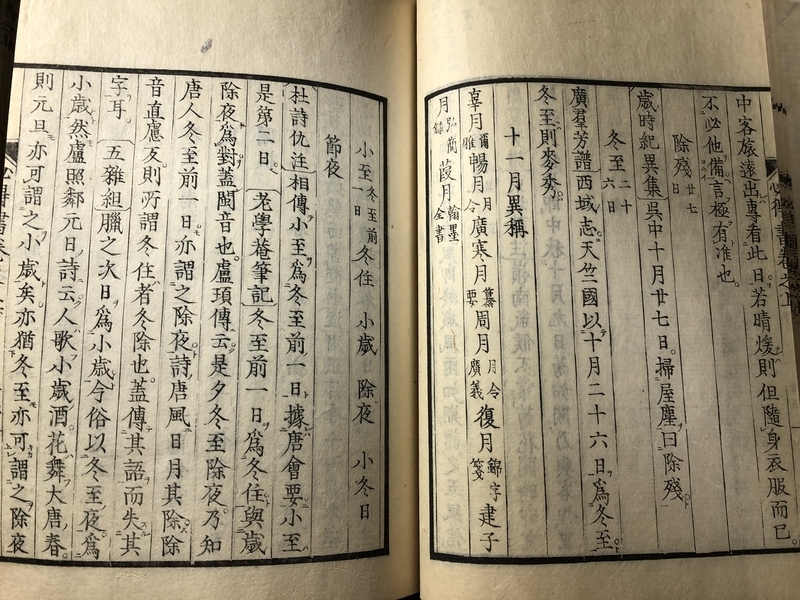 中客旅遠出專看此日若晴煖則但隨身衣服而已
不必他備言極有准也
除殘廿七日
歲時紀異集吳中十月廿七日掃屋塵曰除殘
冬至二十六日
廣羣芳譜西域志天竺國以十月二十六日爲冬至
冬至則麥秀
十一月異稱
辜月爾雅暢月月令廣寒月纂要周月月令廣義復月錦字箋建子
月泓簡錄葭月翰墨全書
小至冬至前一日冬住 小歲 除夜 小冬日
節夜
杜詩仇注相傳小至爲冬至前一日據唐會要小至
是第二日 老學菴筆記冬至前一日爲冬住與歲
除夜爲對蓋閩音也盧頊傳云是夕冬至除夜乃知
唐人冬至前一日亦謂之除夜詩唐風日月其除除
音直慮反則所謂冬住者冬除也蓋傳其語而失其
字耳 五雜組臘之次日爲小歲今俗以冬至夜爲
小歲然盧照鄰元日詩云人歌小歲酒花舞大唐春
則元旦亦可謂之小歲矣亦猶冬至亦可謂之除夜